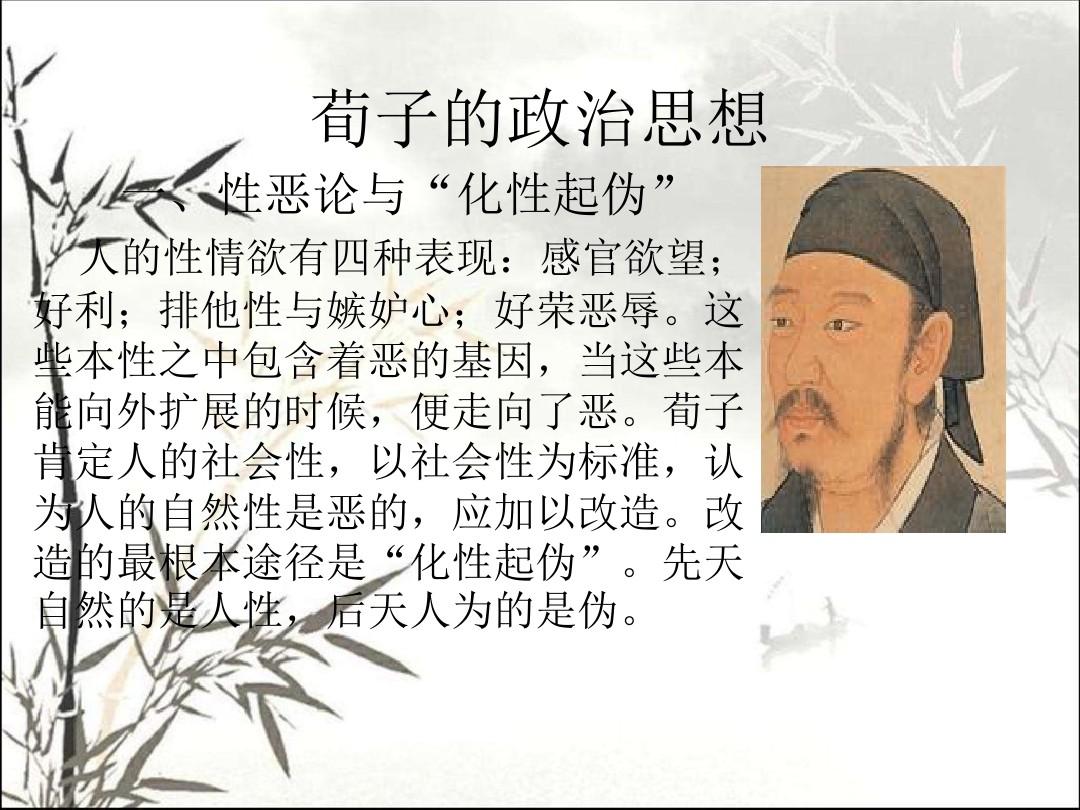 荀子的政治思想
一、性恶论与“化性起伪”
人的性情欲有四种表现：感官欲望；
好利；排他性与嫉妒心；好荣恶辱。这
些本性之中包含着恶的基因，当这些本
能向外扩展的时候，便走向了恶。荀子
肯定人的社会性，以社会性为标准，认
为人的自然性是恶的，应加以改造。改
造的最根本途径是“化性起伪”。先天
自然的是人性，后天人为的是伪。